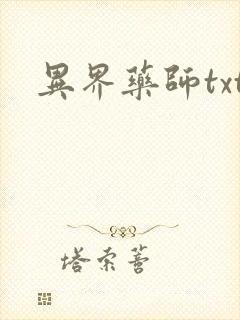 異界藥師txt
塔索蓍